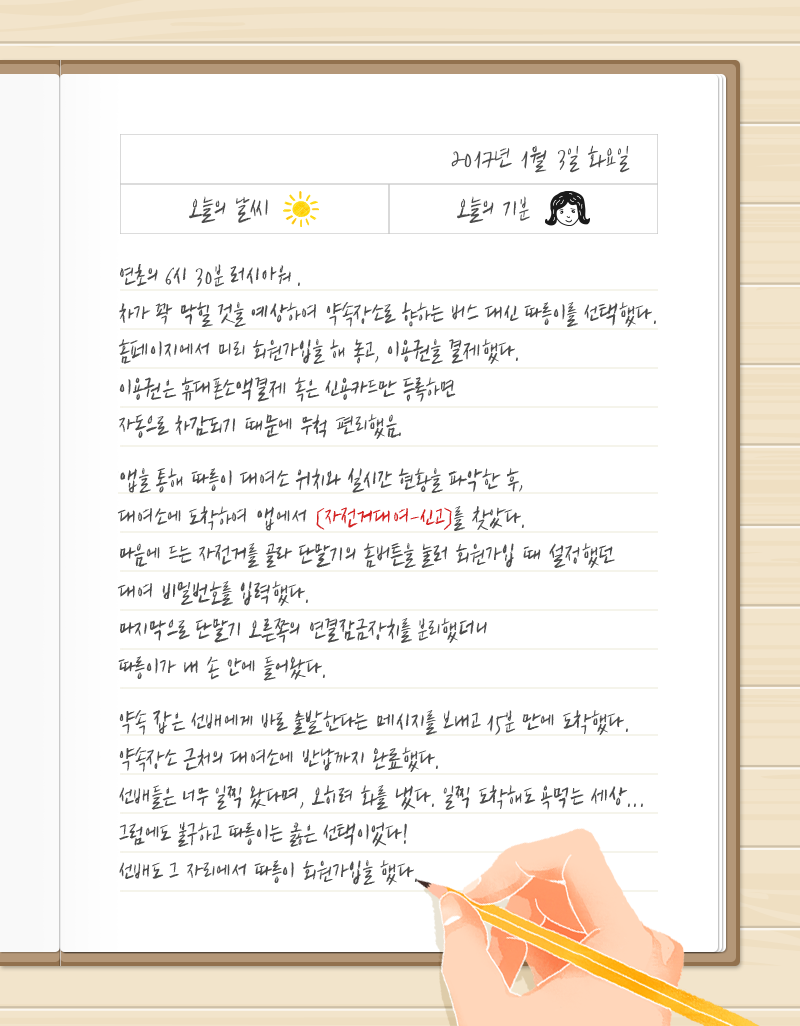 2017년 1월 3일 화요일
오늘의 날씨
오늘의 기분
연초의 6시 30분 러시아워.
차가 꽉 막힐 것을 예상하여 약속장소로 향하는 버스 대신 따릉이를 선택했다.
홈페이지에서 미리 회원가입을 해 놓고, 이용권을 결제했다.
이용권은 휴대폰소액결제 혹은 신용카드만 등록하면
자동으로 차감되기 때문에 무척 편리했음.
앱을 통해 따릉이 대여소 위치와 실시간 현황을 파악한 후,
대여소에 도착하여 앱에서 [자전거대여-신고]를 찾았다.
마음에 드는 자전거를 골라 단말기의 홈버튼을 눌러 회원가입 때 설정했던
대여 비밀번호를 입력했다.
마지막으로 단말기 오른쪽의 연결잠금장치를 분리했더니
따릉이가 내 손 안에 들어왔다.
약속 잡은 선배에게 바로 출발한다는 메시지를 보내고 15분 만에 도착했다.
약속장소 근처의 대여소에 반납까지 완료했다.
선배들은 너무 일찍 왔다며, 오히려 화를 냈다. 일찍 도착해도 욕먹는 세상...
그럼에도 불구하고 따릉이는 옳은 선택이었다!
선배도 그 자리에서 따릉이 회원가입을 했다.